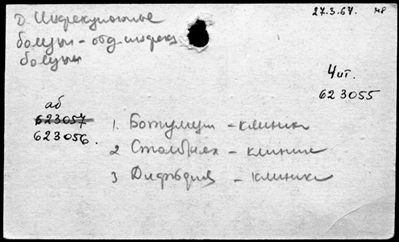 Д. Инфекционные
27.3.64. НР
болезни – отд. инфекц
болезни
Чит.
623055
аб
623057
623056.
1. Ботулизм – клиника
2 Столбняк – клиника
3 Дифтерия – клиника